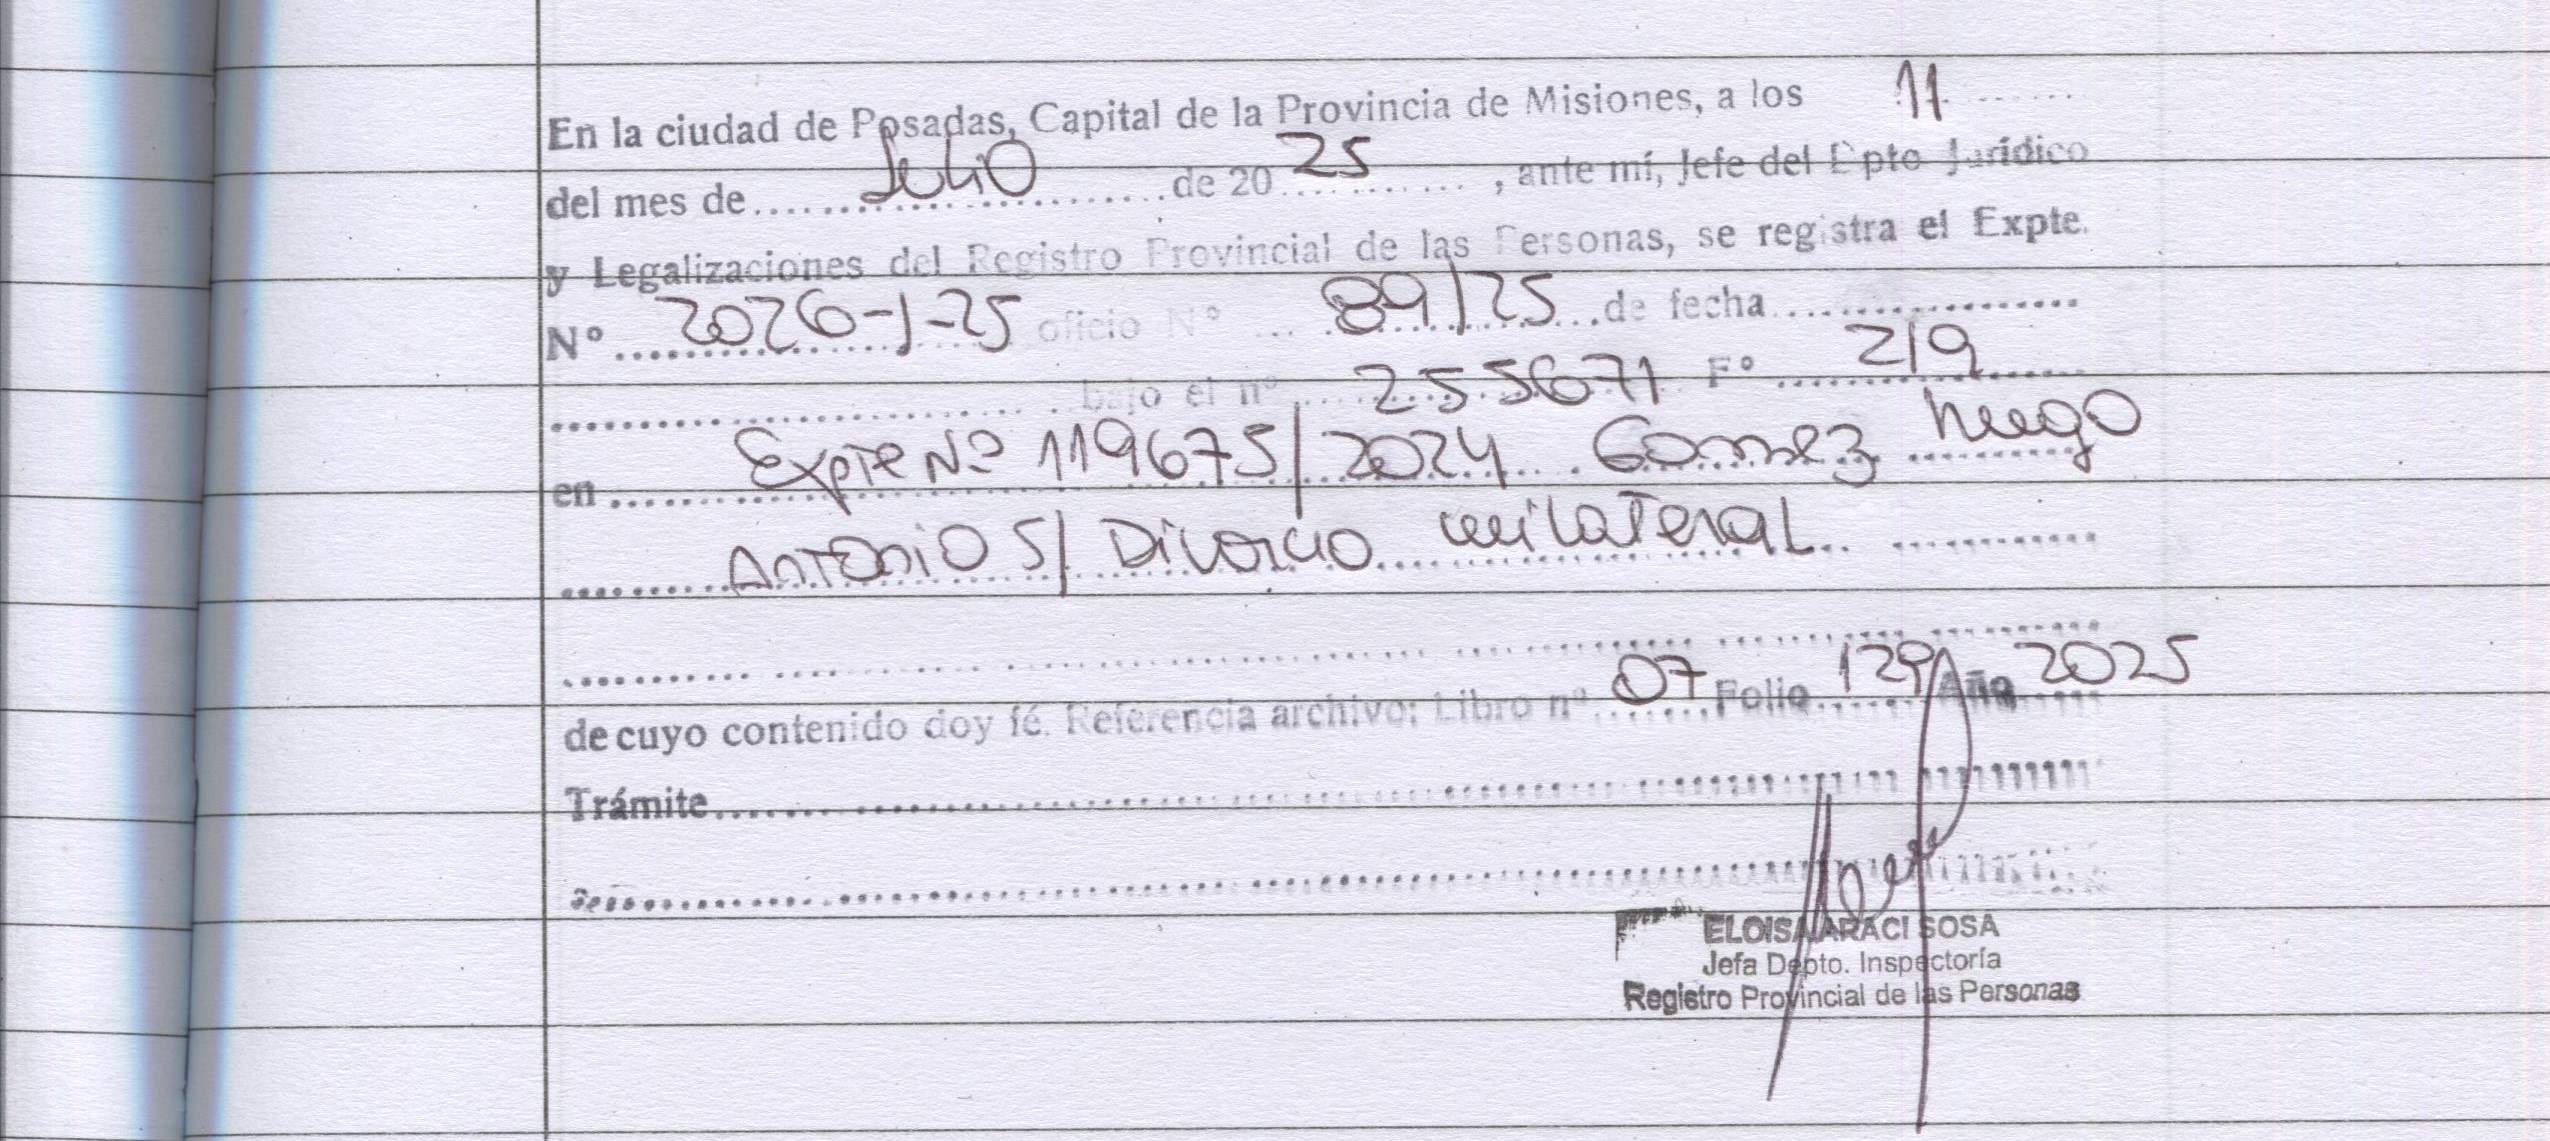 En la ciudad de Posadas, Capital de la Provincia de Misiones, a los 11
del mes de Julio de 2025, ante mí, Jefe del Dpto Jurídico
y Legalizaciones del Registro Provincial de las Personas, se registra el Expte.
Nº 2026-J-25 oficio Nº 89/25 de fecha
bajo el nº 255671 Fº 219
en Expte Nº 119675/2024 Gomez Hugo
Antonio S/ Divorcio unilateral
de cuyo contenido doy fé. Referencia archivo: Libro nº 07 Folio 129 Año 2025
Trámite
ELOISA ARACI SOSA
Jefa Depto. Inspectoría
Registro Provincial de las Personas